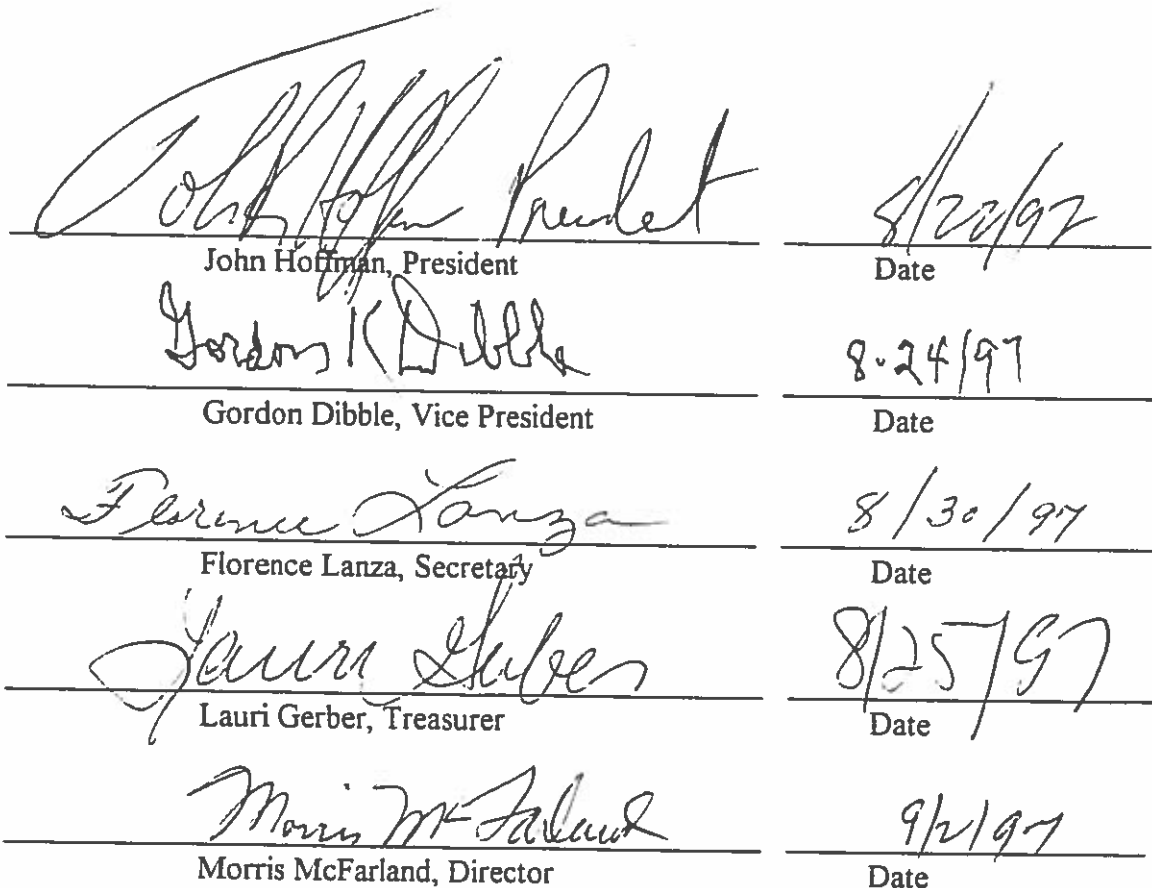 John Hoffman President 8/22/97
John Hoffman, President Date
Gordon K Dibble 8-24/97
Gordon Dibble, Vice President Date
Florence Lanza 8/30/97
Florence Lanza, Secretary Date
Lauri Gerber 8/25/97
Lauri Gerber, Treasurer Date
Morris McFarland 9/2/97
Morris McFarland, Director Date